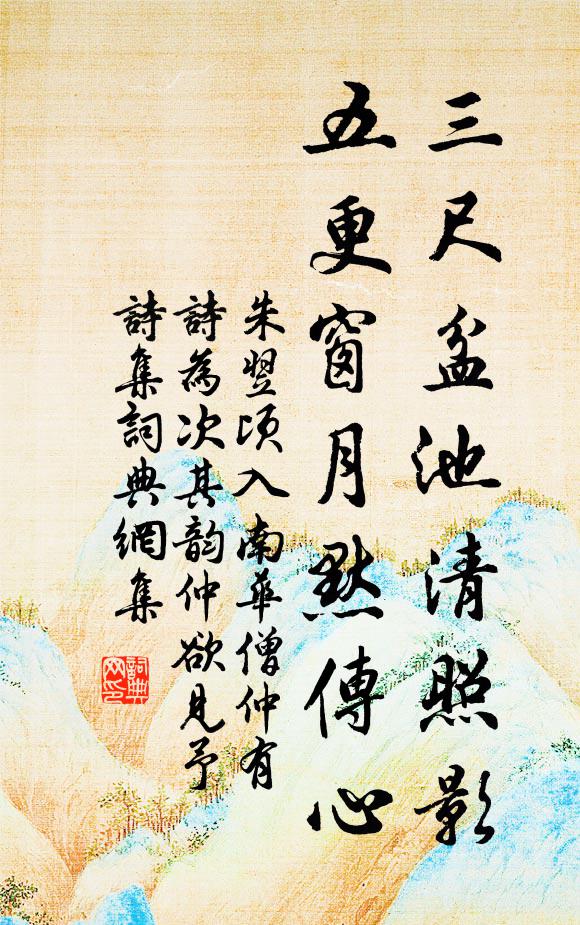 三尺盆池清照影
五更窗月默傳心
朱翌頃入南華僧仲有
詩為次其韵仲欲見予
詩集詞典網集
詞典
网印